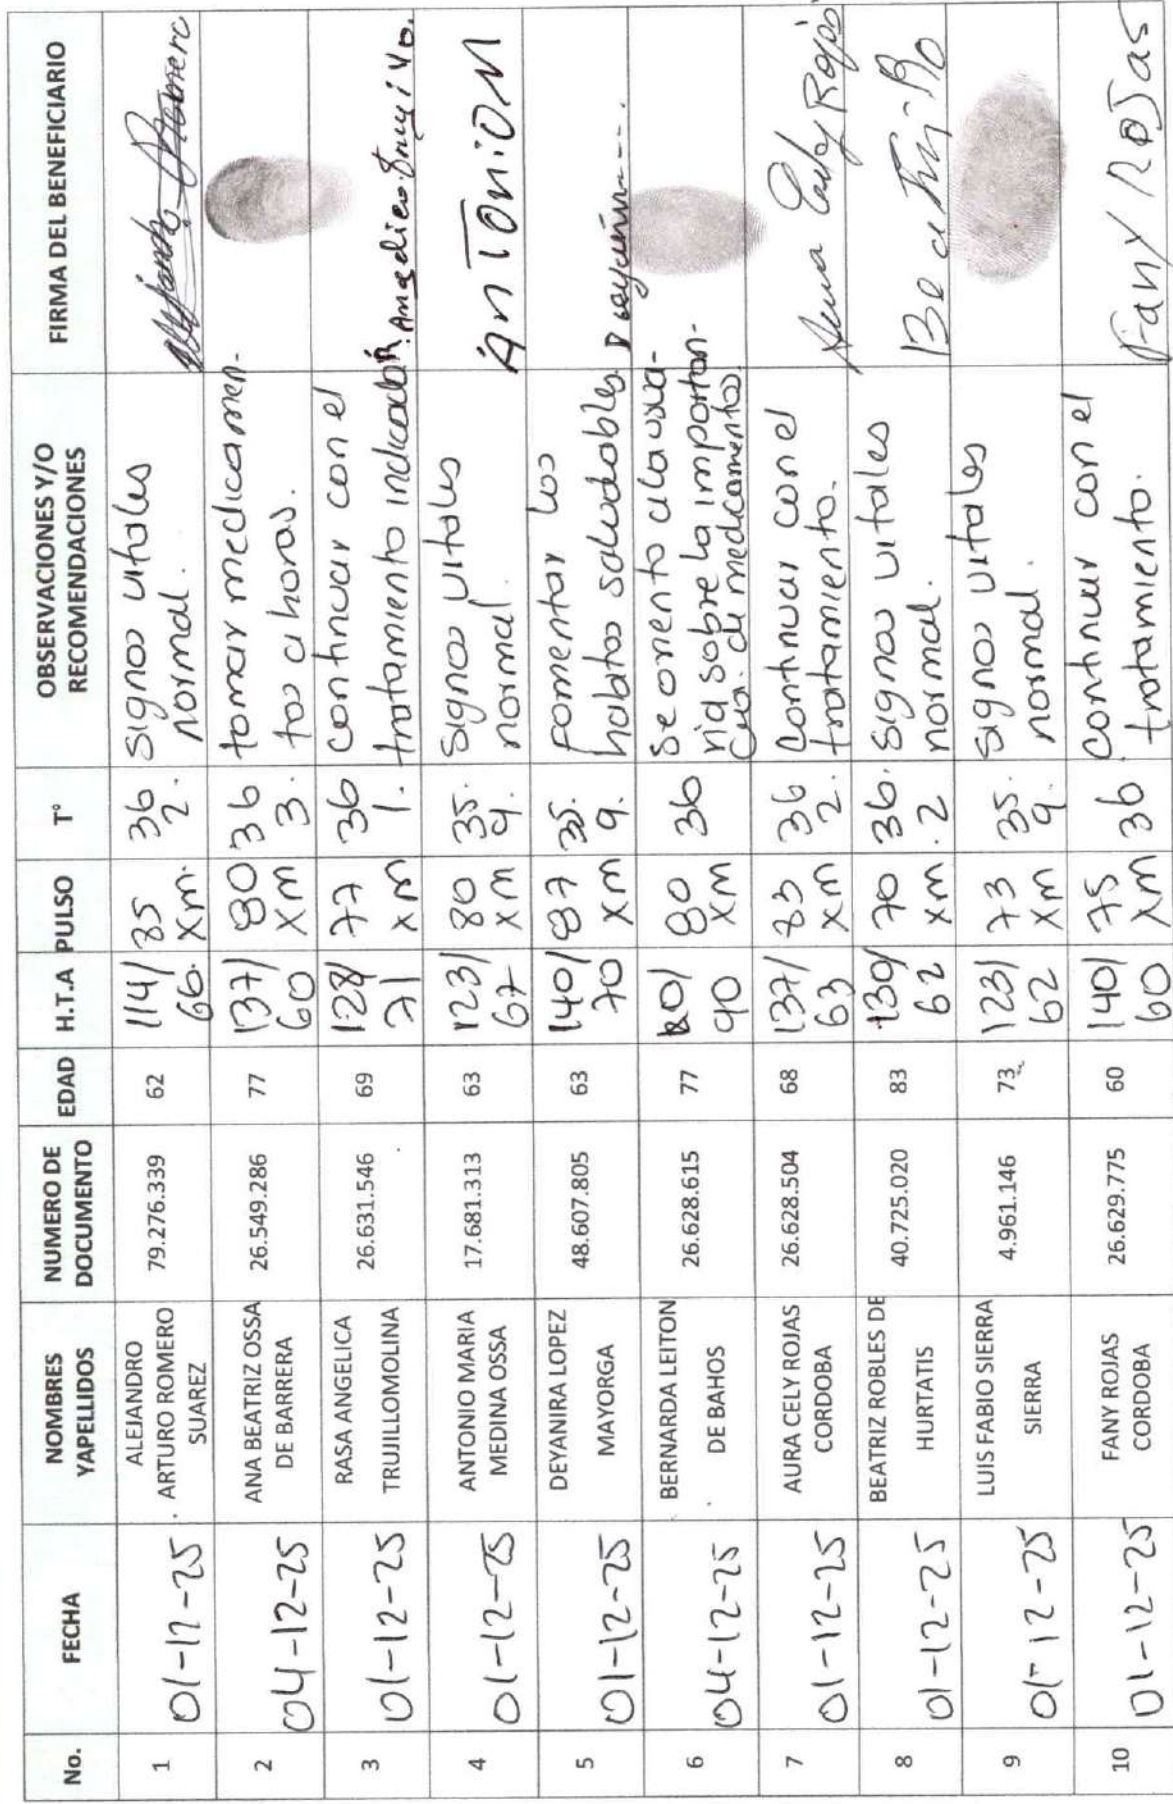 No.
FECHA
NOMBRES
YAPELLIDOS
NUMERO DE
DOCUMENTO
EDAD
H.T.A
PULSO
T°
OBSERVACIONES Y/O
RECOMENDACIONES
FIRMA DEL BENEFICIARIO
1
01-12-25
ALEJANDRO
ARTURO ROMERO
SUAREZ
79.276.339
62
114/
66.
85
xm.
36
2.
Signos vitales
normal.
Alejandro Romero
2
04-12-25
ANA BEATRIZ OSSA
DE BARRERA
26.549.286
77
137/
60
80
xm
36
3.
tomar medicamen-
tos a horas.
3
01-12-25
RASA ANGELICA
TRUJILLOMOLINA
26.631.546
69
128/
71
77
xm
36
1.
continuar con el
tratamiento indicado
4
01-12-25
ANTONIO MARIA
MEDINA OSSA
17.681.313
63
123/
67
80
xm
35.
9.
Signos vitales
normal.
AnTOniO M
5
01-12-25
DEYANIRA LOPEZ
MAYORGA
48.607.805
63
140/
70
87
xm
35.
9.
Fomentar los
habitos saludables
6
04-12-25
BERNARDA LEITON
DE BAHOS
26.628.615
77
90
80
xm
36
Se oriento a la usua-
ria sobre la importan-
cia. de medicamentos.
7
01-12-25
AURA CELY ROJAS
CORDOBA
26.628.504
68
137/
63
83
xm
36
2.
Continuar con el
tratamiento.
Aura Cely Rojas
8
01-12-25
BEATRIZ ROBLES DE
HURTATIS
40.725.020
83
130/
62
70
xm
36.
.2
Signos vitales
normal.
Beatriz Ro
9
01-12-25
LUIS FABIO SIERRA
SIERRA
4.961.146
73
123/
62
73
xm
35.
9.
Signos vitales
normal.
10
01-12-25
FANY ROJAS
CORDOBA
26.629.775
60
140/
60
75
xm
36
continuar con el
tratamiento.
Fany ROJas